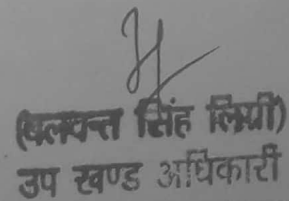 (बलवन्त सिंह लिग्री)
उप खण्ड अधिकारी